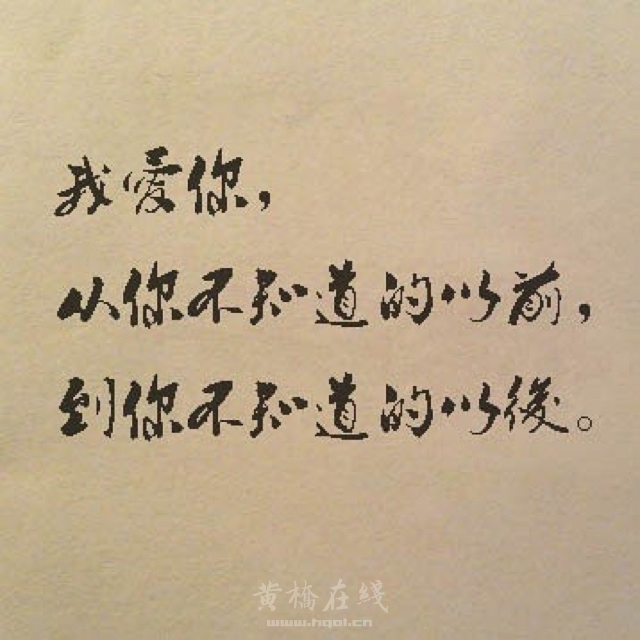 我愛你，
从你不知道的以前，
到你不知道的以後。
黄橋在线
www.hqol.cn